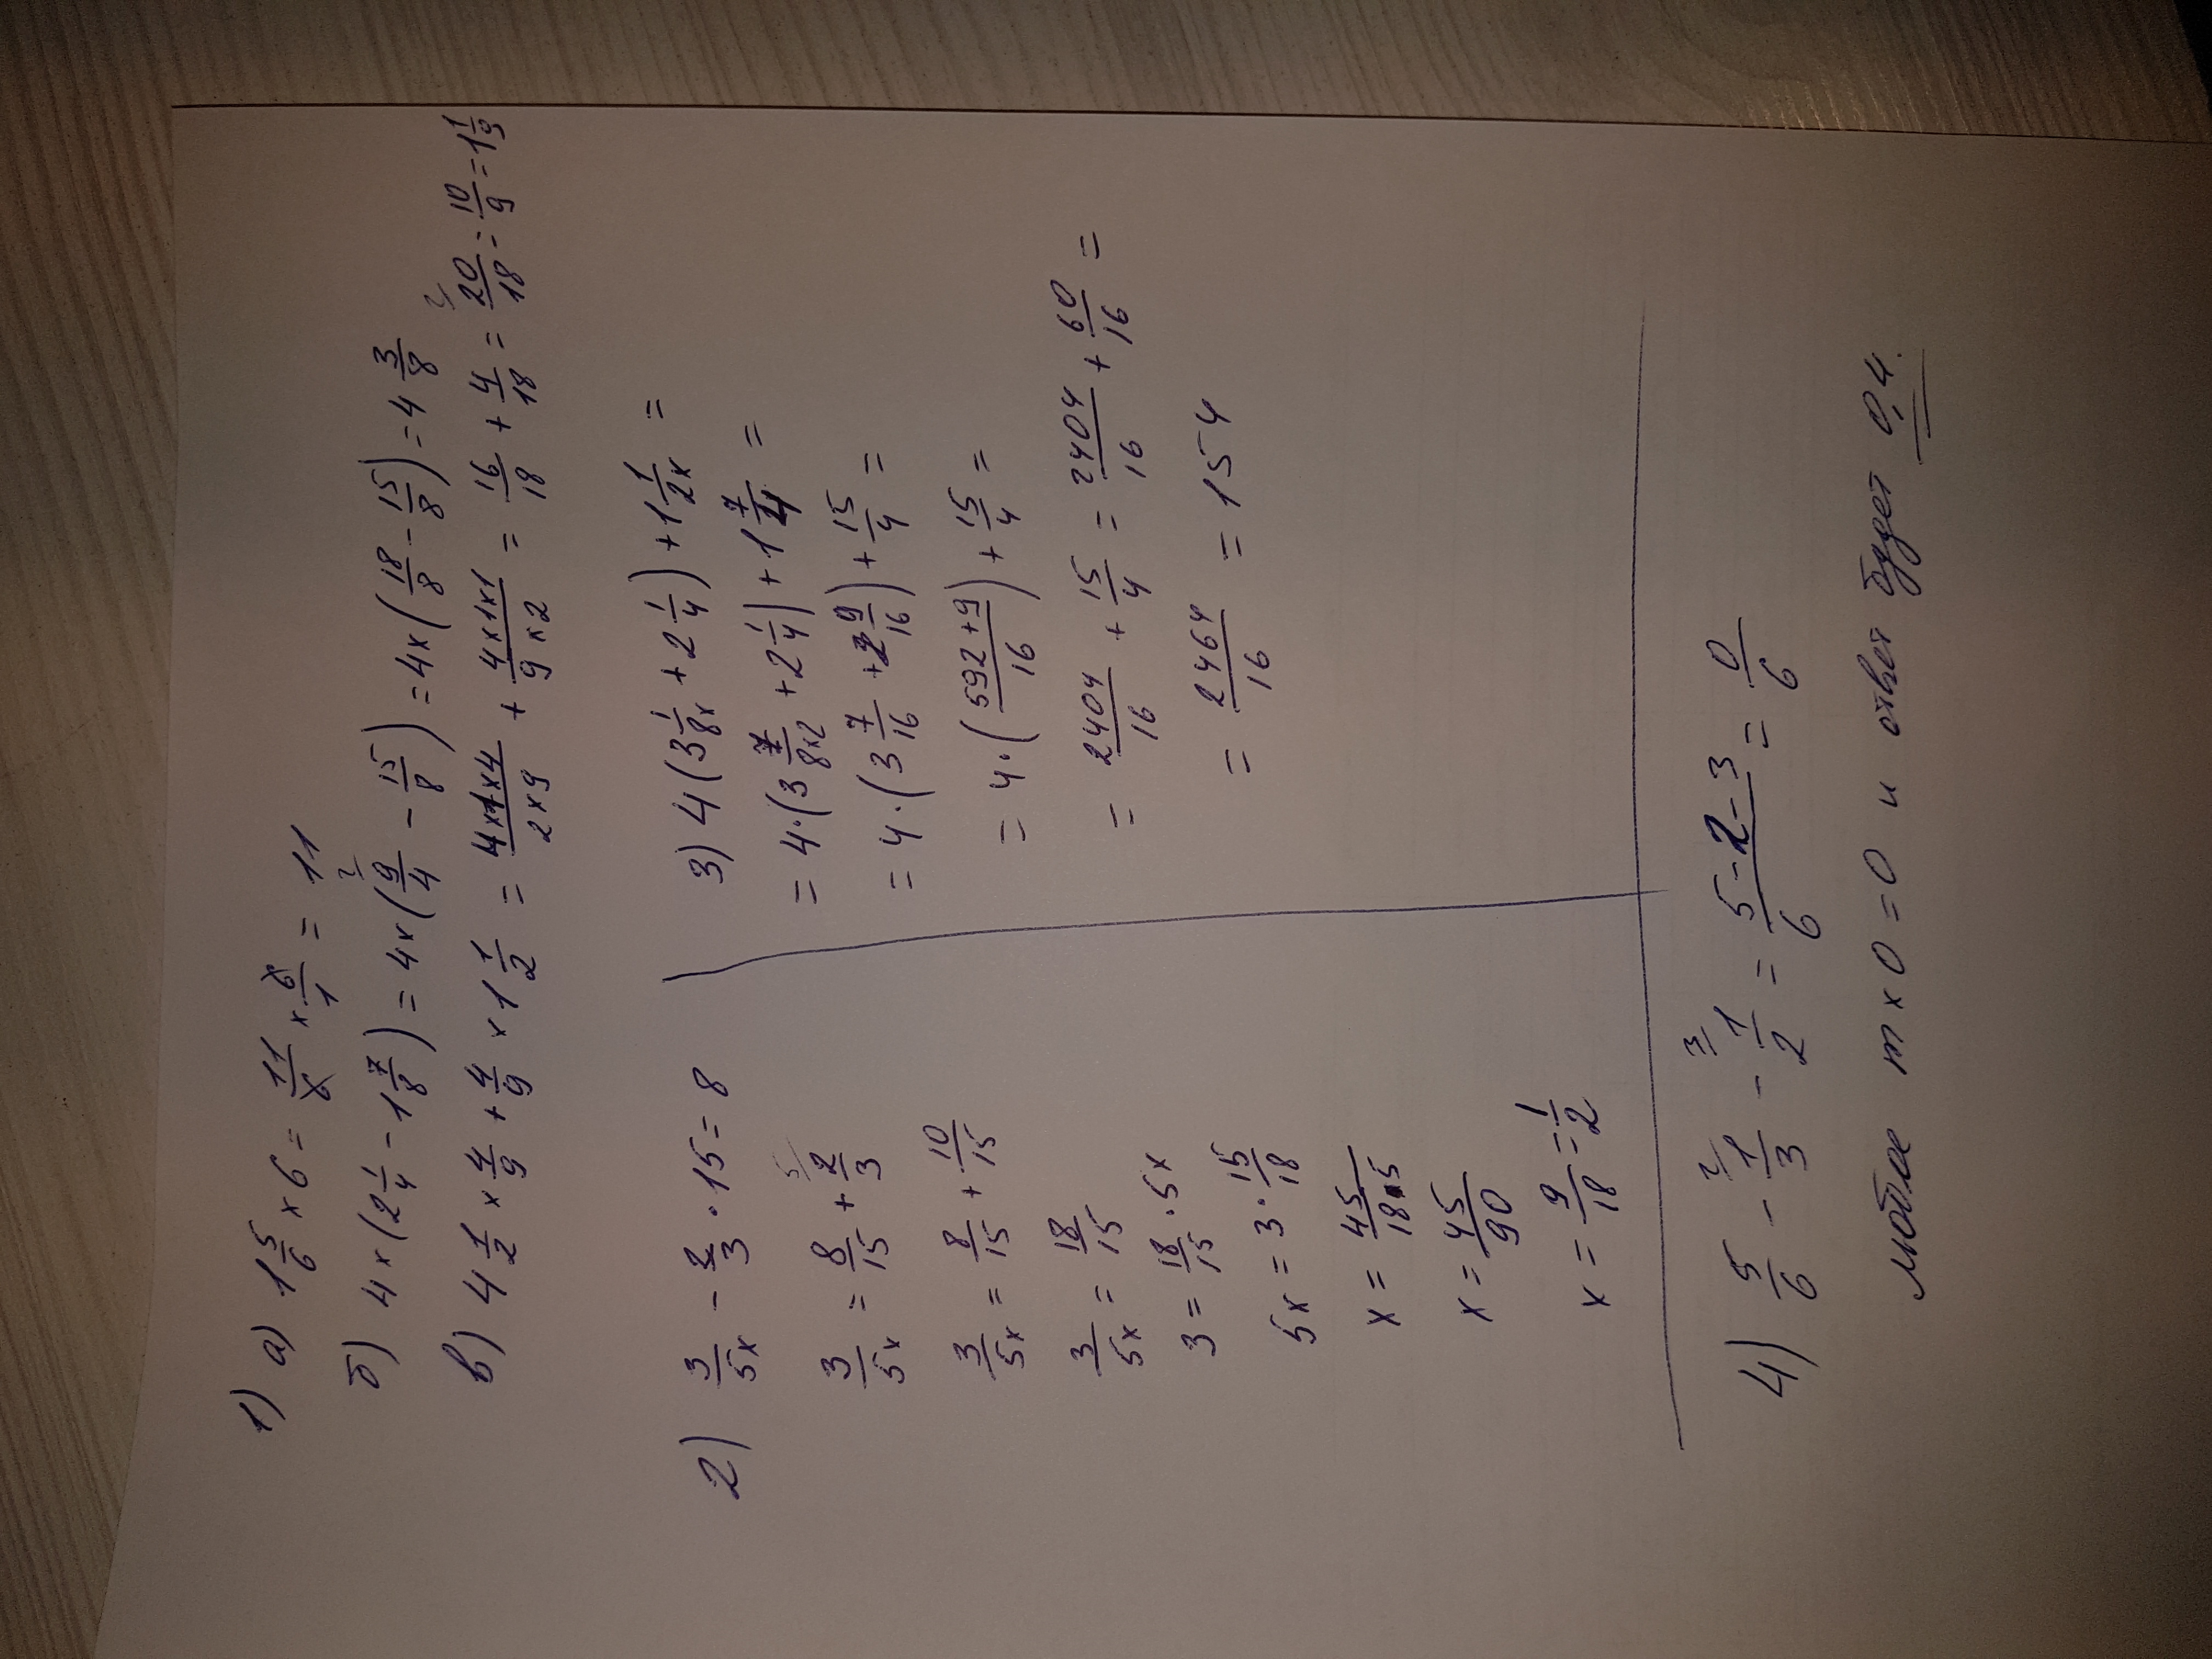 1) а) 1 5/6 × 6 = 11/6 × 6/1 = 11
б) 4×(2 1/4 − 1 7/8) = 4×(9/4 − 15/8) = 4×(18/8 − 15/8) = 4 3/8
в) 4 1/2 × 4/9 + 4/9 × 1 1/2 = 4×1×4/2×9 + 4×1×1/9×2 = 16/18 + 4/18 = 20/18 = 10/9 = 1 1/9
2) 3/5x − 2/3 · 15 = 8
3/5x = 8/15 + 2/3
3/5x = 8/15 + 10/15
3/5x = 18/15
3 = 18/15 · 5x
5x = 3 · 15/18
x = 45/18·5
x = 45/90
x = 9/18 = 1/2
3) 4(3 1/8x + 2 1/4) + 1 1/2x =
= 4·(3 7/8×2 + 2 1/4) + 1 7/4 =
= 4·(3 7/16 + 2 9/16) + 15/4 =
= 4·(592+9/16) + 15/4 =
= 2404/16 + 15/4 = 2404/16 + 60/16 =
= 2464/16 = 154
4) 5/6 − 1/3 − 1/2 = 5−2−3/6 = 0/6
любое m × 0 = 0 и ответ будет 0,4.